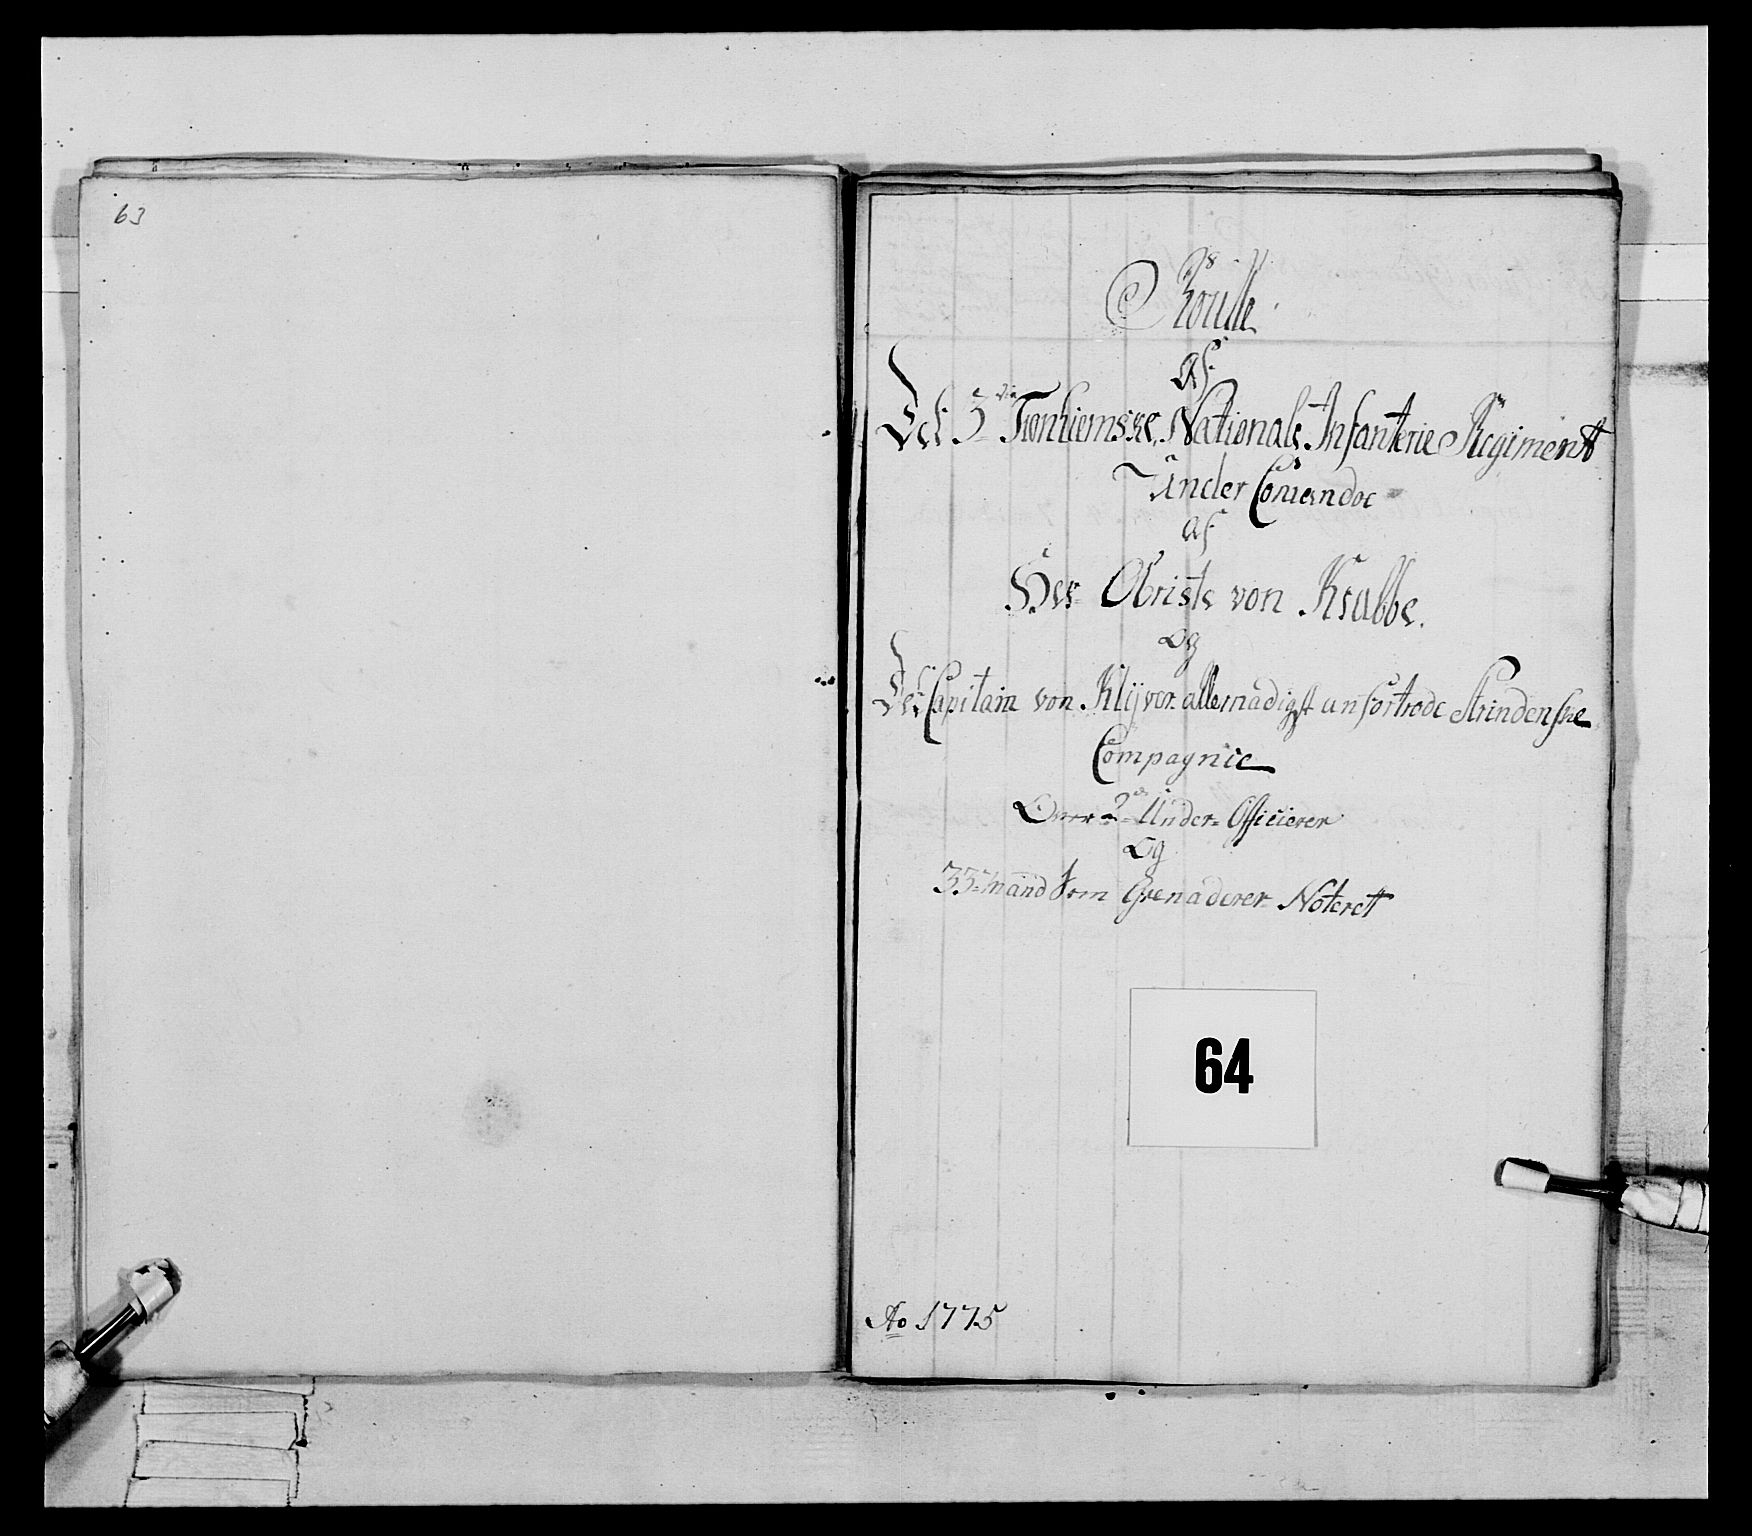 63
Roulle
af
Det 3die Tronhiemske Nationale Infanterie Regiment
Under Comando
af
Her Obriste von Krabbe.
Og
Det Capitain von Klyver allernadigst anfortrode Strindenske
Compagnie
Over 2de Under-Officierer
Og
33 Mand Som Grenaderer Noterett
64
Ao 1775